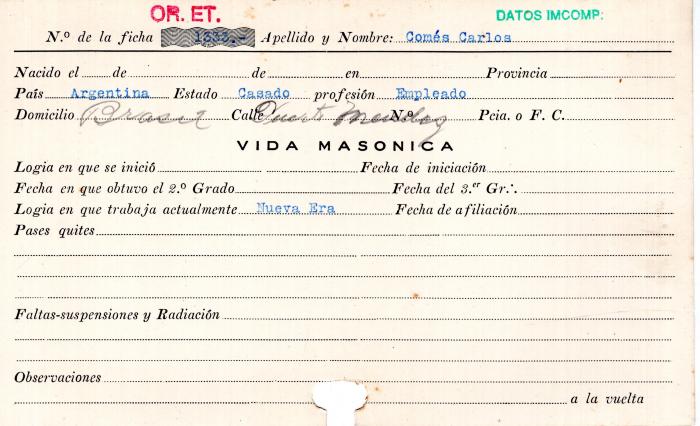 OR. ET.
DATOS IMCOMP:
N.º de la ficha 1333.- Apellido y Nombre: Comés Carlos
Nacido el de de en Provincia
País Argentina Estado Casado profesión Empleado
Domicilio Brasil Calle Puerto Mendez N.º Pcia. o F. C.
VIDA MASONICA
Logia en que se inició Fecha de iniciación
Fecha en que obtuvo el 2.º Grado Fecha del 3.er Gr∴
Logia en que trabaja actualmente Nueva Era Fecha de afiliación
Pases quites
Faltas-suspensiones y Radiación
Observaciones
a la vuelta